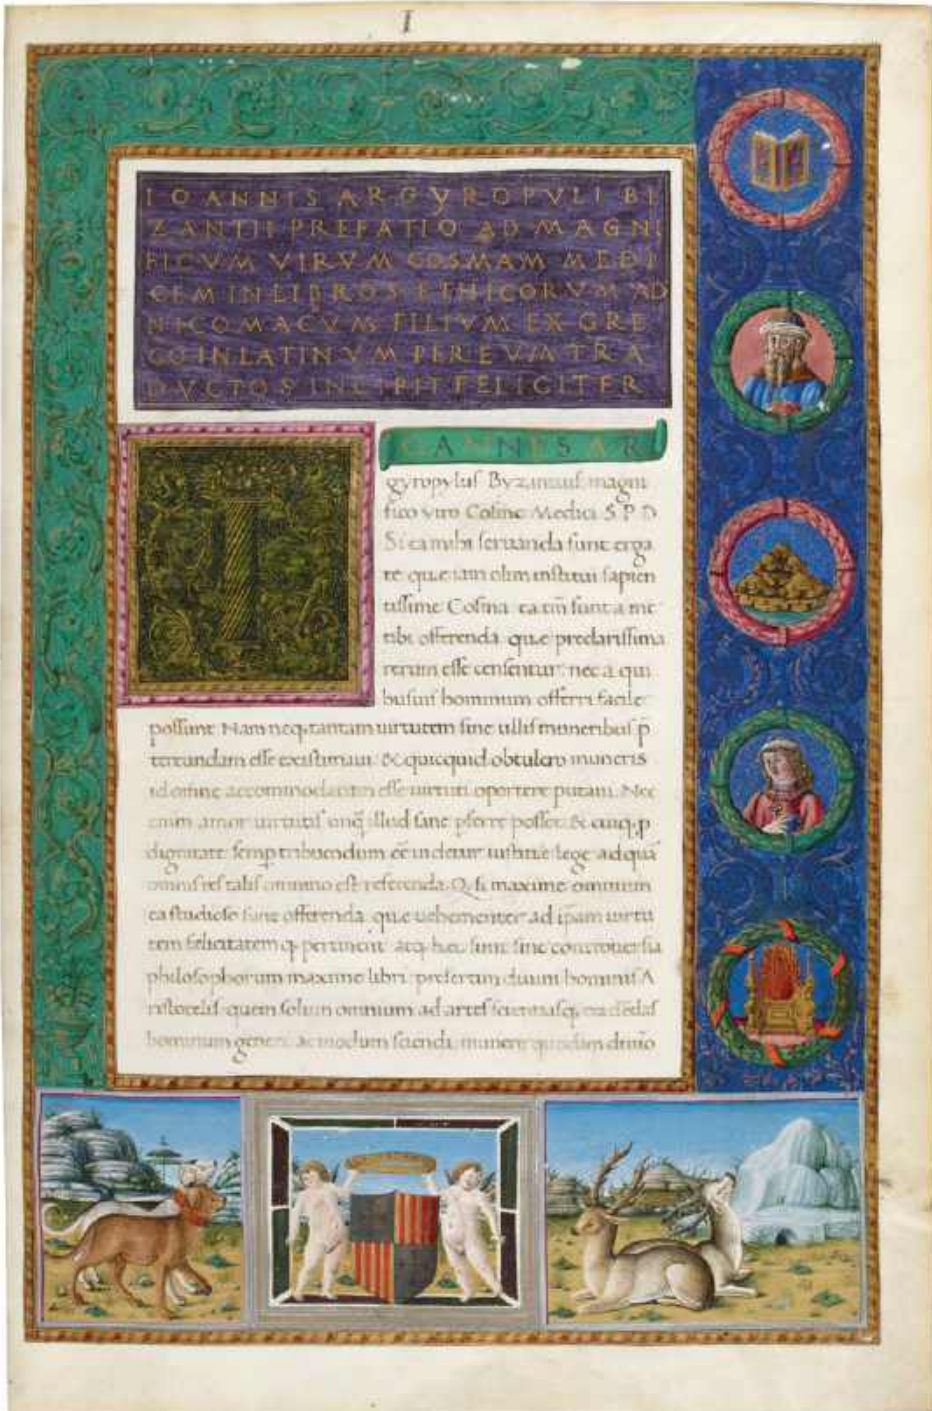 I
IOANNIS ARGYROPVLI BI
ZANTII PREFATIO AD MAGNI
FICVM VIRVM COSMAM MEDI
CEM IN LIBROS ETHICORVM AD
NICOMACVM FILIVM EX GRE
CO IN LATINVM PER EVM TRA
DVCTOS INCIPIT FELICITER
I
OANNES AR
gyropylus Byzantius magni
fico viro Cosme Medici S P D
Si ea mihi seruanda sunt erga
te que iam olim institui sapien
tissime Cosma ea tm̄ sunt a me
tibi offerenda que preclarissima
rerum esse censentur nec a qui
busuis hominum offerri facile
possunt Nam neq; tantam uirtutem sine ullis muneribus p̄
tereundam esse existimaui & quicquid obtulero muneris
id omne accommodatum esse uirtuti oportere putaui. Nec
enim amor uirtutis unq̄ illud sane pferre posset & cuiq; p
dignitate semp tribuendum eē uidetur iustitie lege ad quā
omnis res talis omnino est referenda. Q si maxime omnium
ea studioso sunt offerenda que uehementer ad ip̄am uirtu
tem felicitatem q; pertinent atq; hec sunt sine controuersia
philosophorum maxime libri presertim diuini hominis A
ristotelis quem solum omnium ad artes scientiasq;
hominum generi ac modum sciendi munere quodam diuino